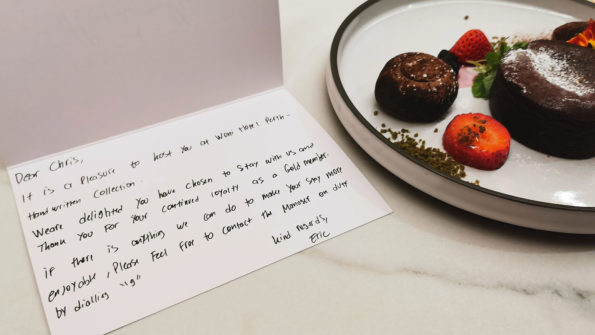 Dear Chris,
It is a pleasure to host you at Woni Hotel Perth -
Handwritten Collection.
Weare delighted you have chosen to stay with us and
Thank you For your continued loyalty as a Gold member.
if there is anything we can do to make your stay more
enjoyable, Please Feel Free to contact the Manager on duty
by dialling "9"
kind regards,
Eric